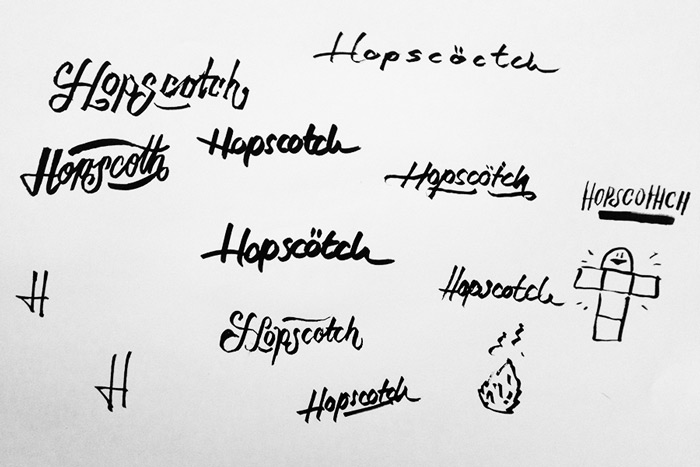 Hopscöctch
Hopscotch
Hopscotch
Hopscoth
Hopscötch
HOPSCOTHCH
Hopscötch
Hopscotch
Hopscotch
Hopscotch
H
H